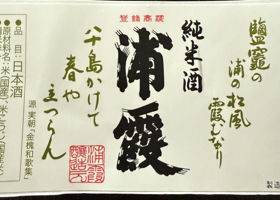 登録商標
純米酒
浦霞
鹽竈の
浦の松風
霞むなり
八十島かけて
春や
立つらん
源 実朝「金槐和歌集」
浦霞
醸造元
●品目 日本酒
●原材料名 米(国産)、米こうじ(国産米)
製造